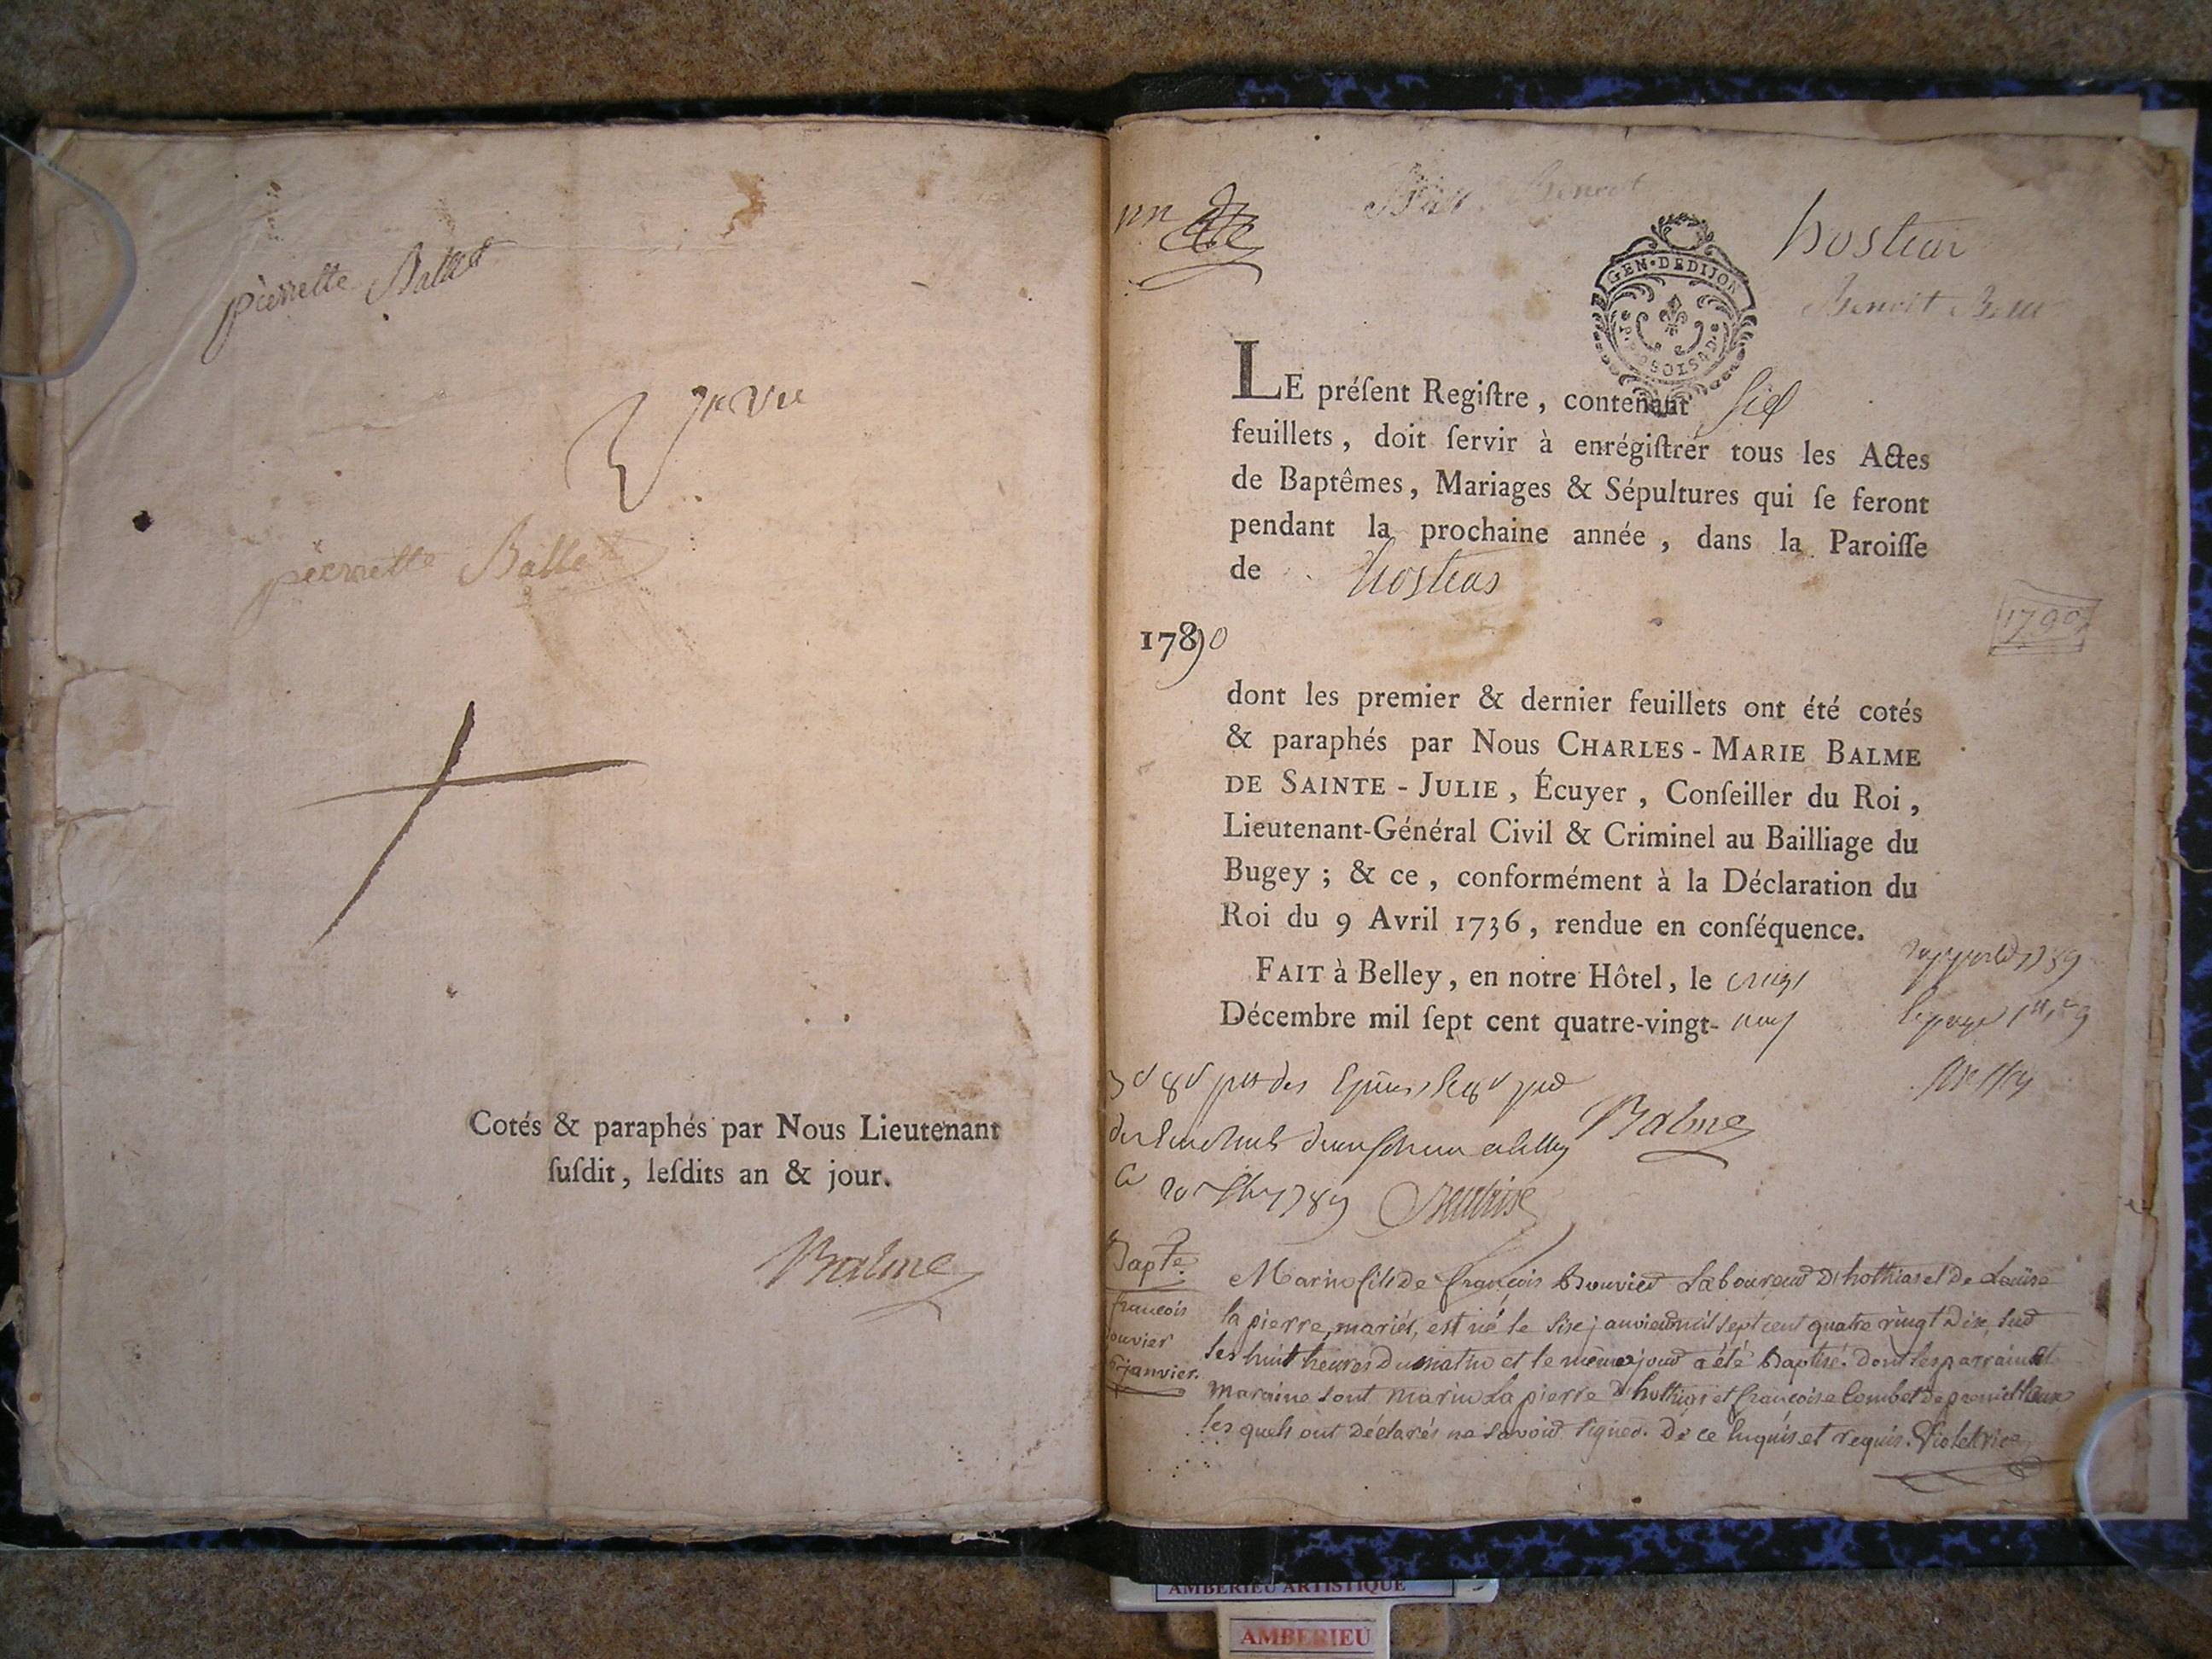 pierrette Ballet
pierrette Ballet
Cotés & paraphés par Nous Lieutenant
ſuſdit, leſdits an & jour.
Balme
Benoit
hostiar
Benoit
GEN. DE DIJON
LE préſent Regiſtre, contenant six
feuillets, doit ſervir à enrégiſtrer tous les Actes
de Baptêmes, Mariages & Sépultures qui ſe feront
pendant la prochaine année, dans la Paroiſſe
de hostias
1790
1790
dont les premier & dernier feuillets ont été cotés
& paraphés par Nous CHARLES-MARIE BALME
DE SAINTE-JULIE, Écuyer, Conſeiller du Roi,
Lieutenant-Général Civil & Criminel au Bailliage du
Bugey; & ce, conformément à la Déclaration du
Roi du 9 Avril 1736, rendue en conſéquence.
FAIT à Belley, en notre Hôtel, le
Décembre mil ſept cent quatre-vingt-neuf
Balme
Bapte.
françois
bouvier
janvier.
Marin fils de françois Bouvier Laboureur D'hothias et de Louise
la pierre, mariés, est né le Six janvier mil sept cent quatre vingt Dix, sur
les huit heures Du matin et le même jour a été Baptisé. Dont les parrain et
maraine sont marin La pierre D'hothias et françoise Combet de
les quels ont Déclarés ne savoir signer. De ce Enquis et requis. Violet vic
AMBERIEU ARTISTIQUE
AMBERIEU